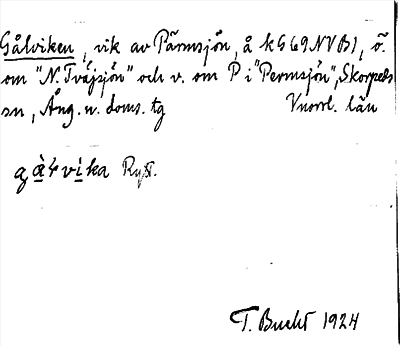 Gålviken, vik av Pärmsjön, å k G 69 NV B1, ö.
om "N. Tväjsjön" och v. om P i "Permsjön", Skorpeds
sn, Ång. n. doms. tg Vnorrl. län
gàlvika
T. Bucht 1924